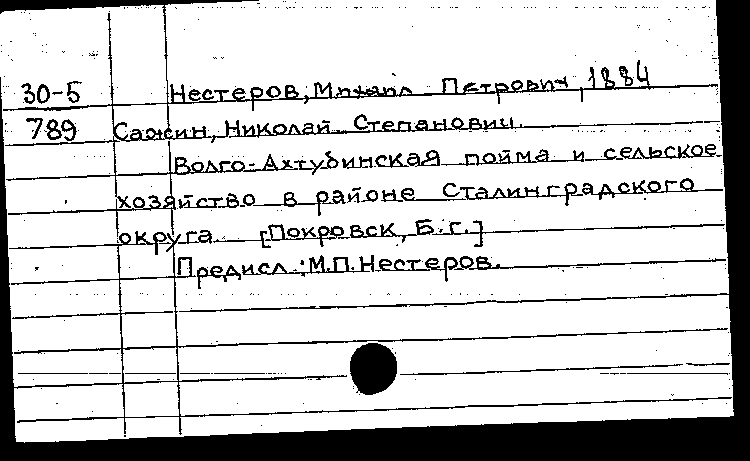 30-5 Нестеров, Михаил Петрович, 1884
789 Сажин, Николай Степанович.
Волго-Ахтубинская пойма и сельское
хозяйство в районе Сталинградского
округа. [Покровск, Б.г.]
Предисл.: М.П. Нестеров.